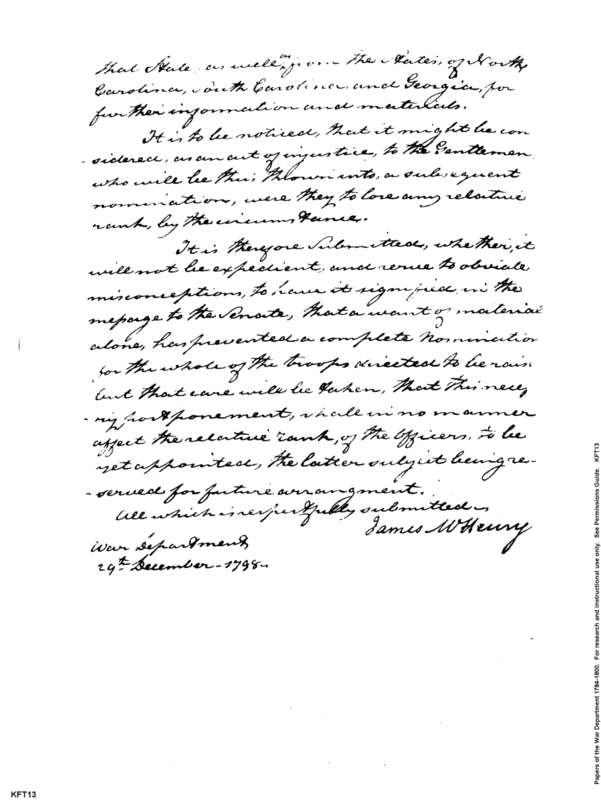 that State, as well as from the States, of North
Carolina, South Carolina, and Georgia, for
further information and materials.
It is to be noticed, that it might be con
-sidered, as an act of injustice, to the Gentlemen
who will be thus thrown into, a subsequent
nomination, were they to lose any relative
rank, by the circumstance.
It is therefore Submitted, whether, it
will not be expedient, and serve to obviate
misconceptions, to have it signified, in the
message to the Senate, that a want of material
alone, has prevented a complete Nomination
for the whole of the troops directed to be rais
but that care will be taken, that this neces
-ry postponement, shall in no manner
affect the relative rank, of the Officers, to be
yet appointed, the latter subject being re-
-served for future arrangment.
All which is respectfully submitted
James McHenry
War Department
29th December - 1798
KFT13
Papers of the War Department 1784-1800. For research and instructional use only. See Permissions Guide. KFT13